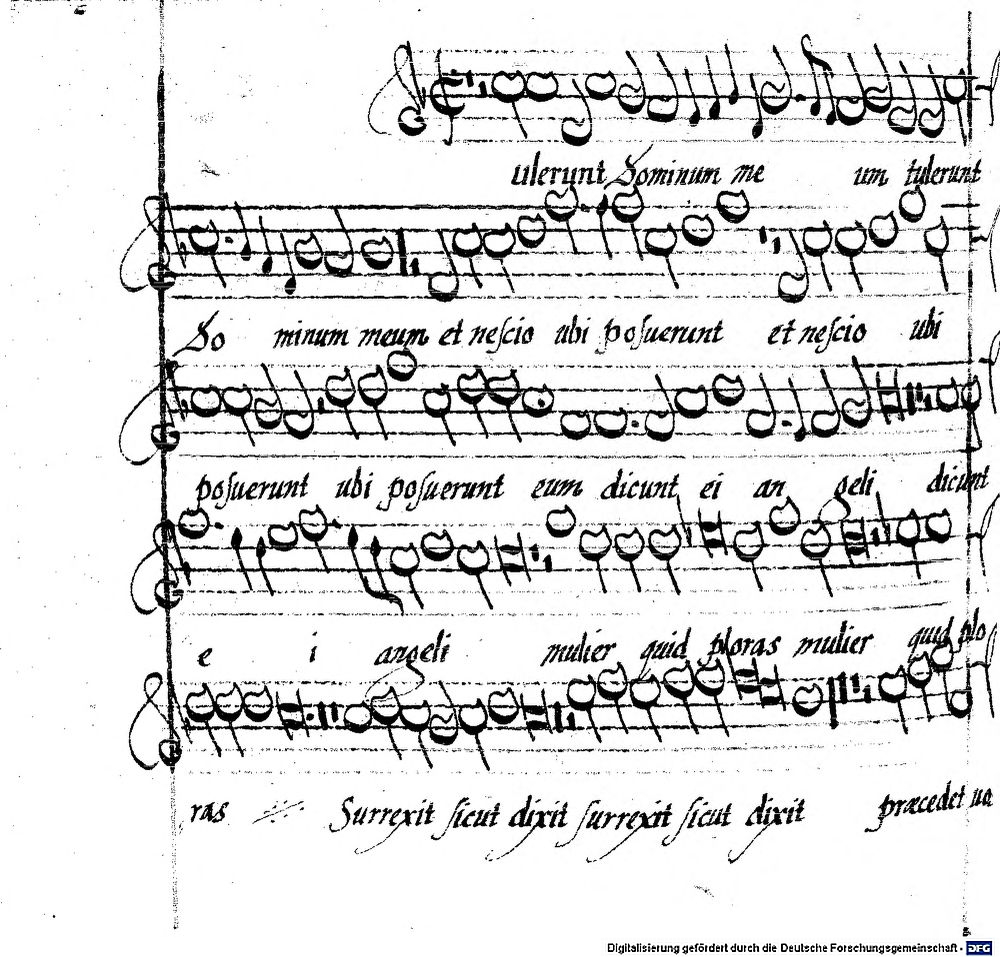 ulerunt Dominum me um tulerunt
Do minum meum et neſcio ubi poſuerunt et neſcio ubi
poſuerunt ubi poſuerunt eum dicunt ei an geli dicunt
e i angeli mulier quid ploras mulier quid plo
ras Surrexit ſicut dixit ſurrexit ſicut dixit præcedet uo
Digitalisierung gefördert durch die Deutsche Forschungsgemeinschaft - DFG